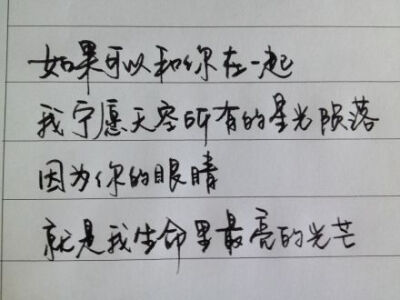 如果可以和你在一起
我宁愿天空所有的星光陨落
因为你的眼睛
就是我生命里最亮的光芒